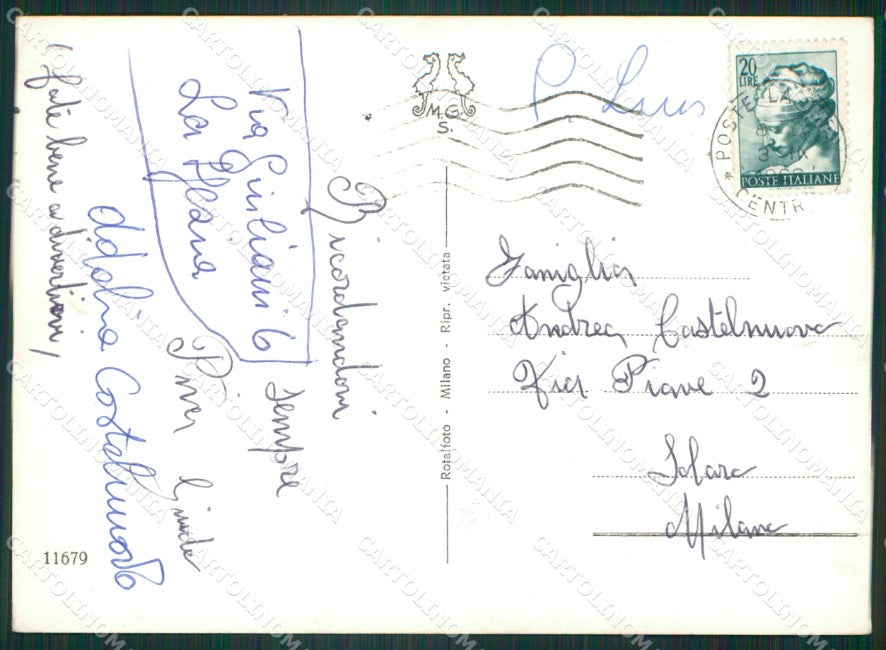 Ricordandovi
sempre
Pina Guido
Adalia Castelnuovo
(fate bene a divertirvi)
Via Giuliani 6
La
P. Luis
M.G.
S.
20
LIRE
POSTE ITALIANE
POSTE
CENTR
Famiglia
Andrea Castelnuovo
Via Piave 2
Solaro
Milano
Rotalfoto - Milano - Ripr. vietata
11679
CARTOLINOMANIA